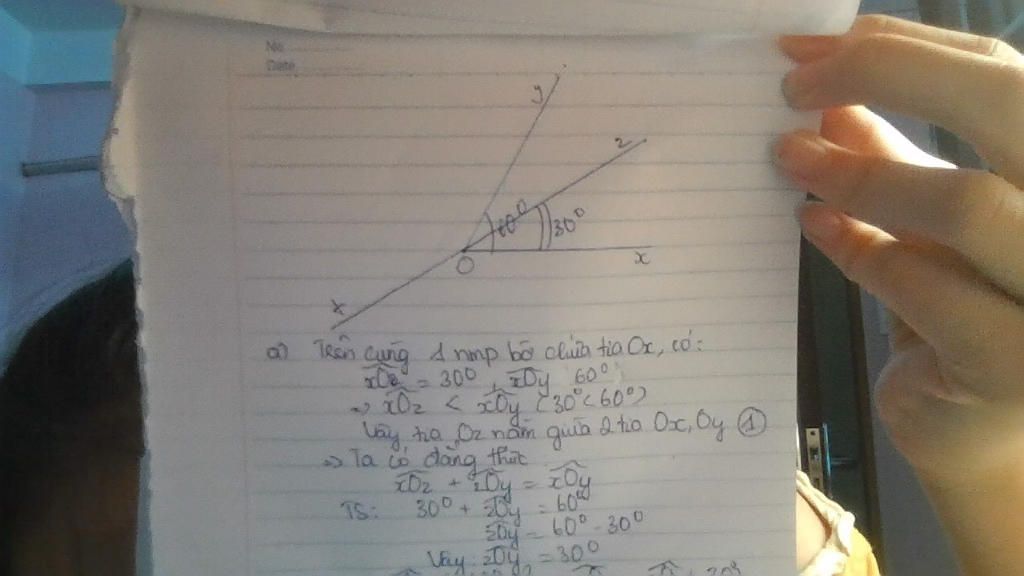 No
Date
y
z
60°
30°
O
x
t
a) Trên cùng 1 nmp bờ chứa tia Ox, có:
xOz = 30°, xOy 60°
=> xOz < xOy (30° < 60°)
Vậy tia Oz nằm giữa 2 tia Ox, Oy ①
=> Ta có đẳng thức
xOz + zOy = xOy
TS: 30° + zOy = 60°
zOy = 60° - 30°
Vậy: zOy = 30°